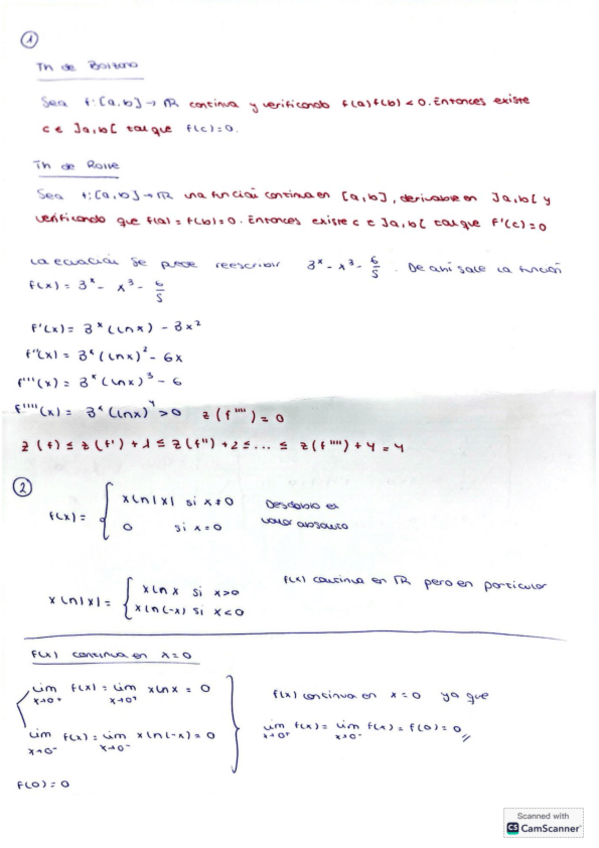 1
Th de Bolzano
Sea f: [a,b] → ℝ continua y verificando f(a)f(b) < 0. Entonces existe
c ∈ ]a,b[ tal que f(c)=0.
Th de Rolle
Sea f: [a,b] → ℝ una función continua en [a,b], derivable en ]a,b[ y
verificando que f(a) = f(b) = 0. Entonces existe c ∈ ]a,b[ tal que f'(c)=0
La ecuación se puede reescribir 3^x - x^3 - 6/5. De ahí sale la función
f(x) = 3^x - x^3 - 6/5
f'(x) = 3^x (ln x) - 3x^2
f''(x) = 3^x (ln x)^2 - 6x
f'''(x) = 3^x (ln x)^3 - 6
f''''(x) = 3^x (ln x)^4 > 0 z(f'''') = 0
z(f) ≤ z(f') + 1 ≤ z(f'') + 2 ≤ ... ≤ z(f'''') + 4 = 4
2
f(x) = { x ln|x| si x ≠ 0
0 si x = 0
Desdoblo el
valor absoluto
x ln|x| = { x ln x si x > 0
x ln(-x) si x < 0
f(x) continua en ℝ pero en particular
f(x) continua en x = 0
lim x→0⁺ f(x) = lim x→0⁺ x ln x = 0
lim x→0⁻ f(x) = lim x→0⁻ x ln(-x) = 0
f(0) = 0
f(x) continua en x = 0 ya que
lim x→0⁺ f(x) = lim x→0⁻ f(x) = f(0) = 0
Scanned with
CS CamScanner